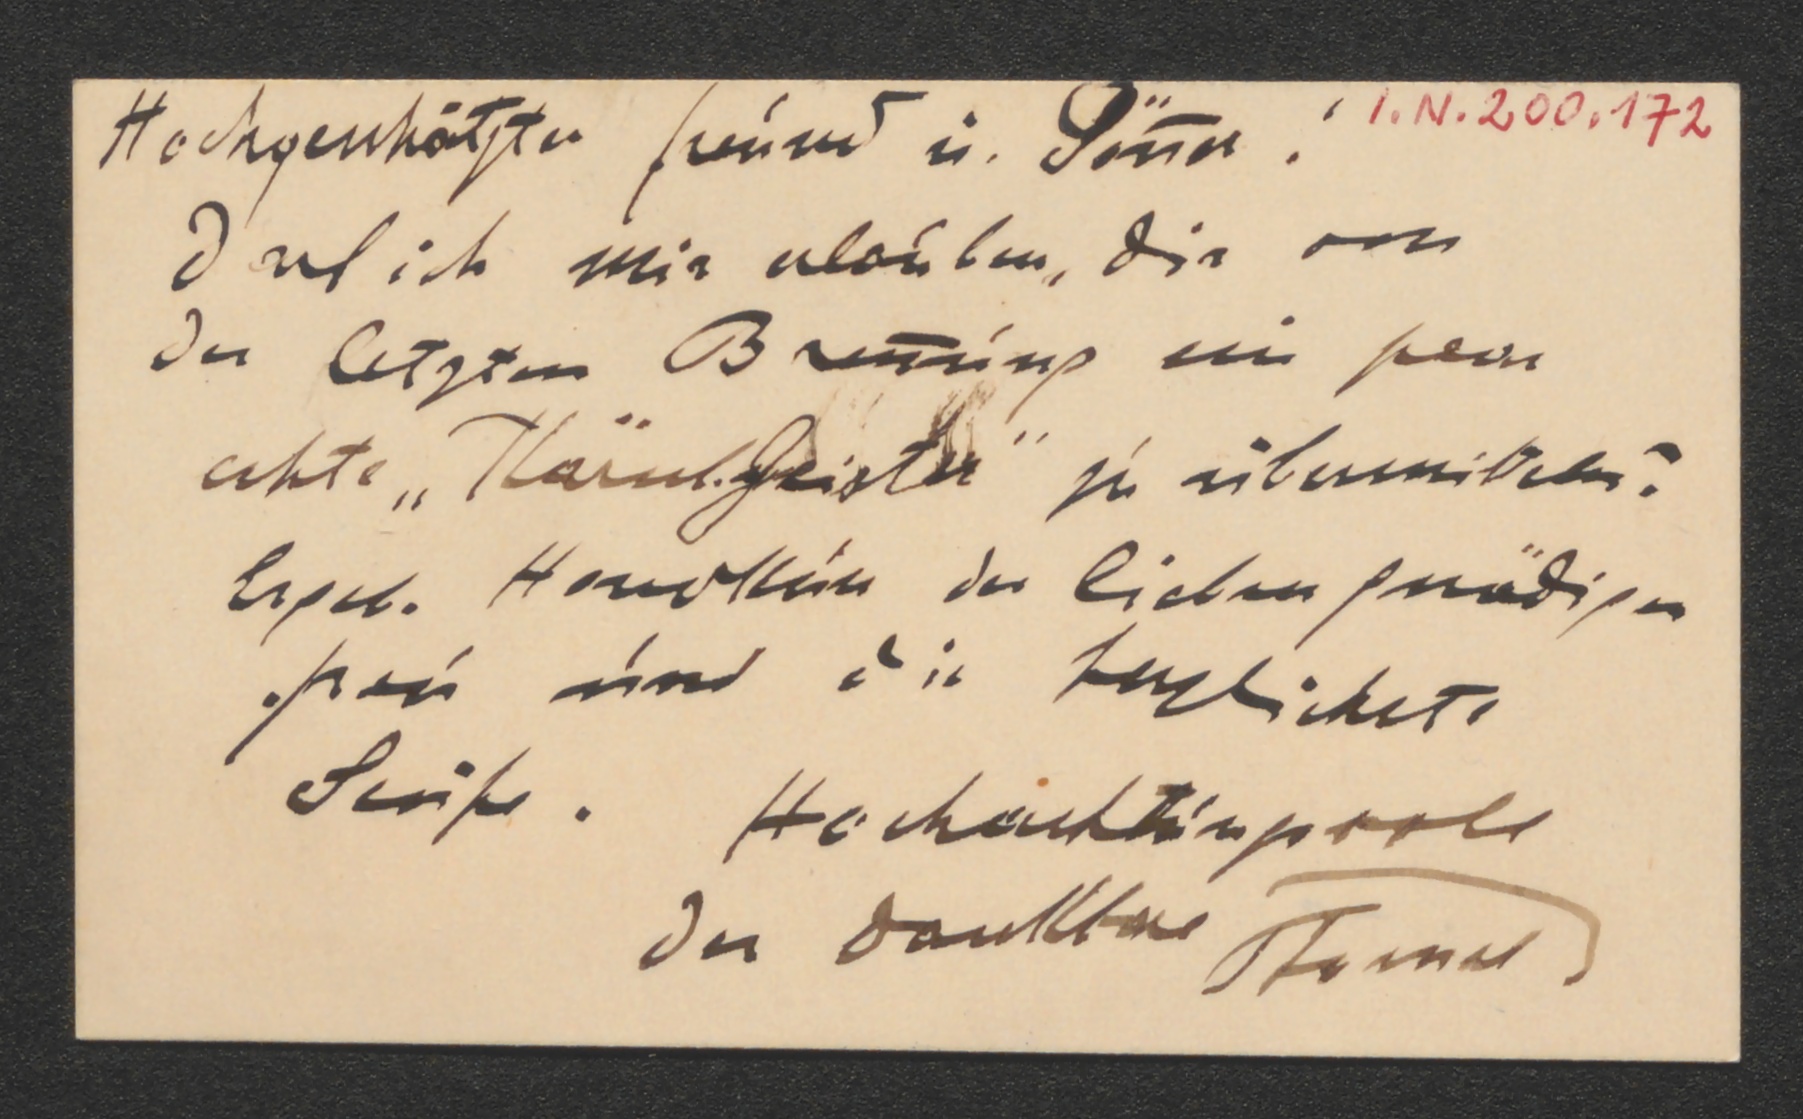 I.N. 200.172
Hochgeschätzter Freund u. Gönner!
Darf ich mir erlauben, dir von
der letzten Brennung ein paar
echte „Kärnt. Geister“ zu übermitteln?
Ergeb. Handküsse der lieben gnädigen
Frau und dir herzlichste
Grüße. Hochachtungsvoll
der dankbare